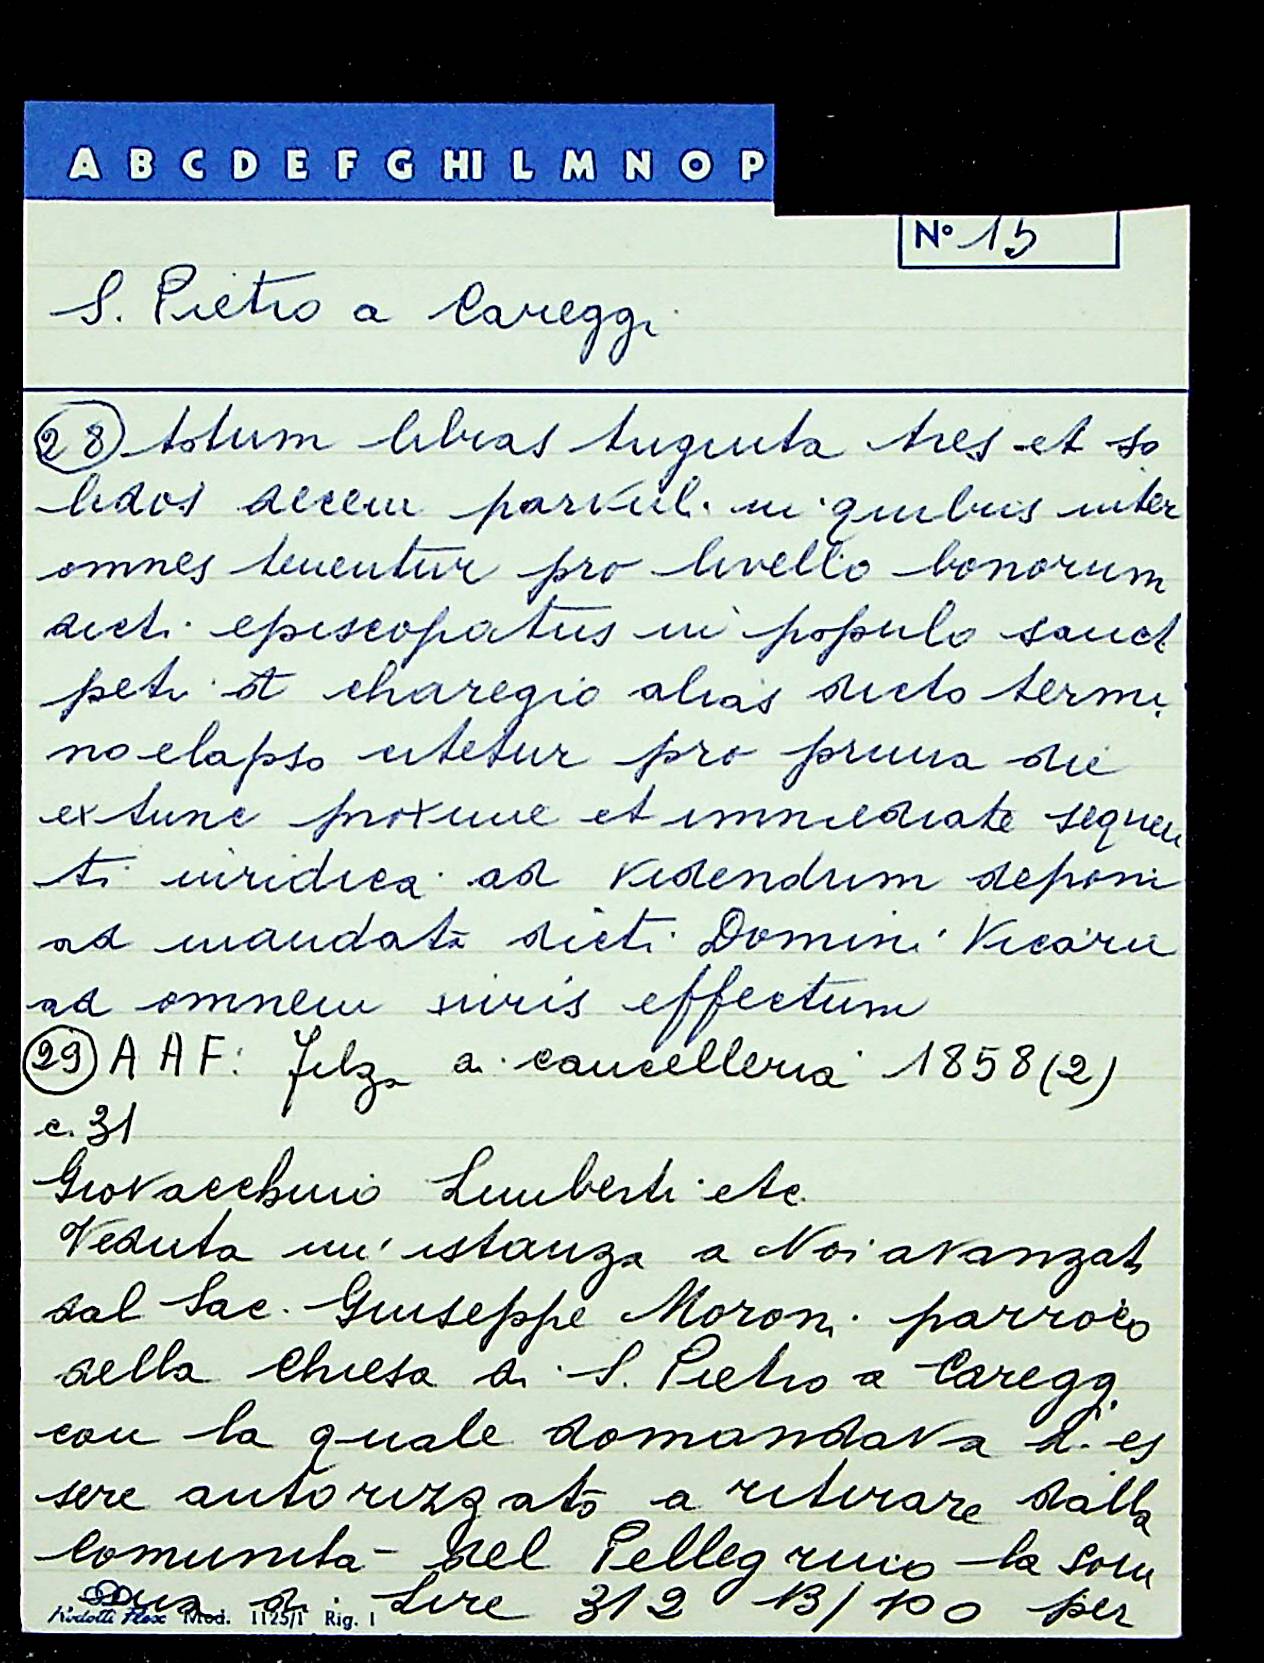 A B C D E F G HI L M N O P
N° 15
S. Pietro a Careggi
28 totum libras triginta tres et so
lidos decem parvul. in quibus inter
omnes tenentur pro livello bonorum
dicti episcopatus in populo sanct
petri de charegio alias dicto termi
no elapso citetur pro prima die
extunc proxime et immediate sequen
ti iuridica ad videndum deponi
ad mandata dicti Domini Vicarii
ad omnem iuris effectum
29 A A F: Filza di cancelleria 1858 (2)
c. 31
Giovacchino Limberti etc
Veduta un' istanza a Noi avanzata
dal Sac. Giuseppe Moroni parroco
della Chiesa di S. Pietro a Careggi
con la quale domandava d'es
sere autorizzato a ritirare dalla
Comunità del Pellegrino la som
ma di Lire 312 13/100 per
Mod. 1125/1 Rig. 1